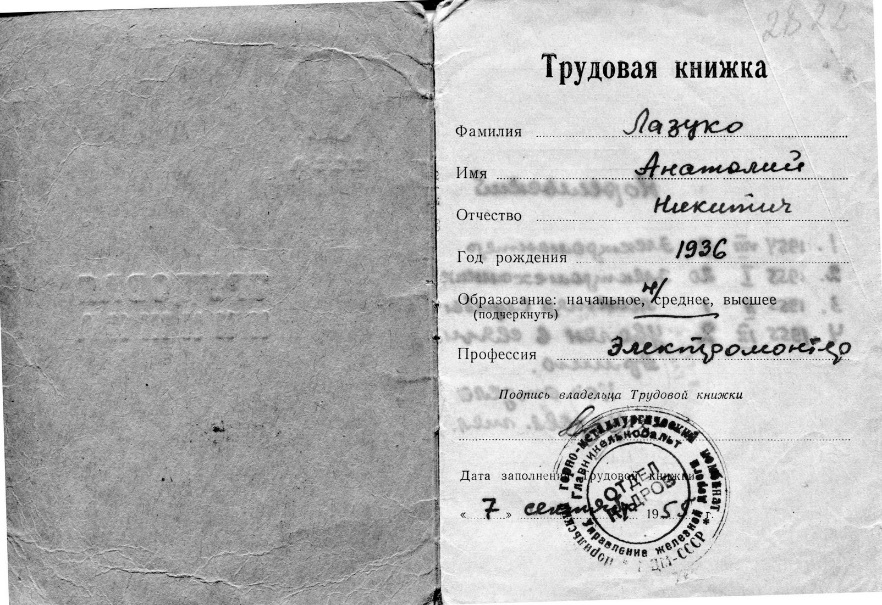 2822
Трудовая книжка
Фамилия Лазуко
Имя Анатолий
Отчество Никитич
Год рождения 1936
Образование: начальное, н/среднее, высшее
(подчеркнуть)
Профессия Электромонтер
Подпись владельца Трудовой книжки
Дата заполнения Трудовой книжки
« 7 » сентября 1955 г.
Норильский горно-металлургический комбинат
Главникелькобальт
ОТДЕЛ
КАДРОВ
Управление железной дороги